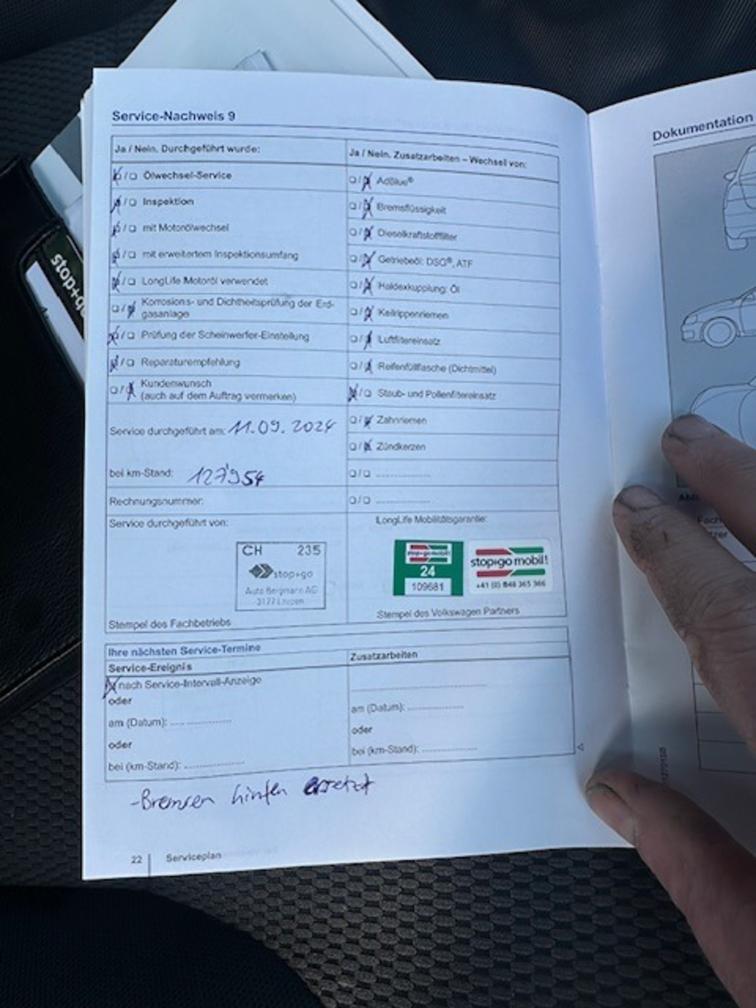 Service-Nachweis 9
Ja / Nein. Durchgeführt wurde:
Ölwechsel-Service
Inspektion
mit Motorölwechsel
mit erweitertem Inspektionsumfang
LongLife Motoröl verwendet
Korrosions- und Dichtheitsprüfung der Erd-
gasanlage
Prüfung der Scheinwerfer-Einstellung
Reparaturempfehlung
Kundenwunsch
(auch auf dem Auftrag vermerken)
Service durchgeführt am: 11.09.2024
bei km-Stand: 127'954
Rechnungsnummer:
Service durchgeführt von:
CH 235
stop+go
Auto Bergmann AG
3177 Laupen
Stempel des Fachbetriebs
Ja / Nein. Zusatzarbeiten – Wechsel von:
AdBlue®
Bremsflüssigkeit
Dieselkraftstofffilter
Getriebeöl: DSG®, ATF
Haldexkupplung: Öl
Keilrippenriemen
Luftfiltereinsatz
Reifenfüllflasche (Dichtmittel)
Staub- und Pollenfiltereinsatz
Zahnriemen
Zündkerzen
LongLife Mobilitätsgarantie:
stop+go mobil!
24
109681
stop+go mobil!
+41 (0) 848 365 366
Stempel des Volkswagen Partners
Ihre nächsten Service-Termine
Service-Ereignis
nach Service-Intervall-Anzeige
oder
am (Datum):
oder
bei (km-Stand):
Zusatzarbeiten
am (Datum):
oder
bei (km-Stand):
-Bremsen hinten ersetzt
22 Serviceplan
Dokumentation
stop+g